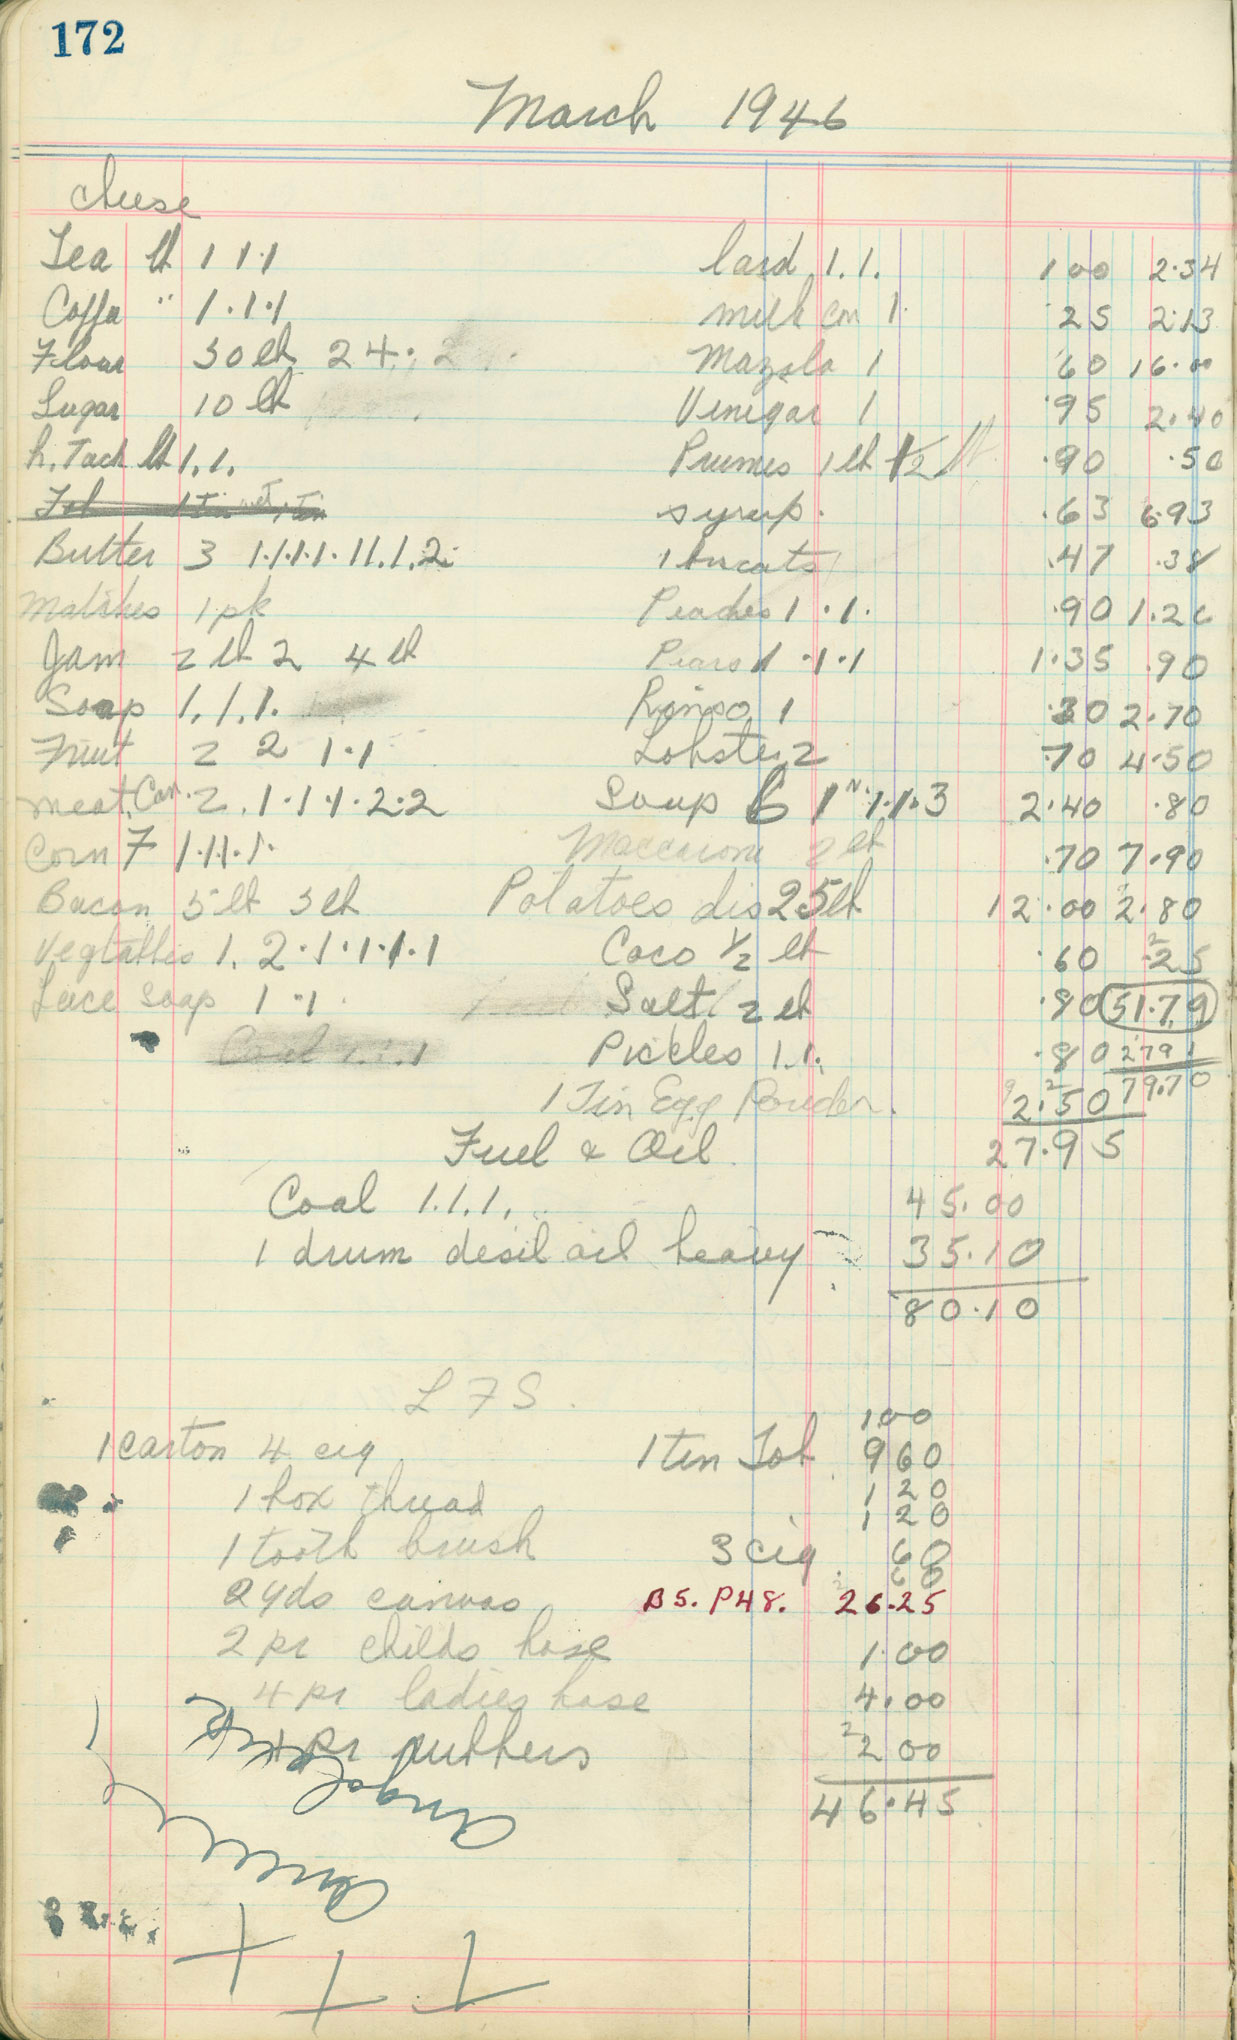 172
March 1946
cheese
Tea lb 1 1 . 1 lard 1.1. 1 00 2.34
Coffa " 1 . 1 . 1 milk con 1 .25 2.13
Flour 50 lb 24 .60 16.00
Mazola 1
Sugar 10 lb Vinegar 1 .95 2.40
h. Tack lb 1. 1. Prunes 1 lb 1/2 lb .90 .50
Tob 1 Tin syrup. .63 6.93
Butter 3 1.1.1.1. 11.1.2 .47 .38
Matches 1 pk Peaches 1 . 1. .90
Jam 2 lb 2 4 lb Pears 1 . 1 . 1 1.35 .90
Soap 1. 1. 1. Rinso 1 .30 2.70
Fruit 2 2 1 . 1 Lobster 2 .70 4.50
meat. Can. 2. 1 . 1 . 1 . 2 . 2 Soup 6 1 1. 1. 3 2.40 .80
Corn 7 1.11.1. Maccaroni 2 lb .70 7.90
Bacon 5 lb 5 lb Potatoes dis 25 lb 12.00 2.80
Vegtables 1. 2 . 1 . 1 . 1 . 1 . 1 Coco 1/2 lb .60 .25
Face soap 1 . 1 Salt 2 lb .80 51.79
Coal 1.1.1 Pickles 1. 1. .80 2791
1 Tin Egg Powder. 2.50 79.70
Fuel & Oil 27.95
Coal 1. 1. 1. 45.00
1 drum desil oil heavy 35.10
80.10
L F S.
1 00
1 carton 4 cig 1 ten Tob 9 60
1 box thread 1 20
1 20
1 tooth brush 3 cig 60
60
2 yds canvas BS. P48. 26.25
2 pr childs hose 1.00
4 pr ladies hose 4.00
pr rubbers 2 00
46.45